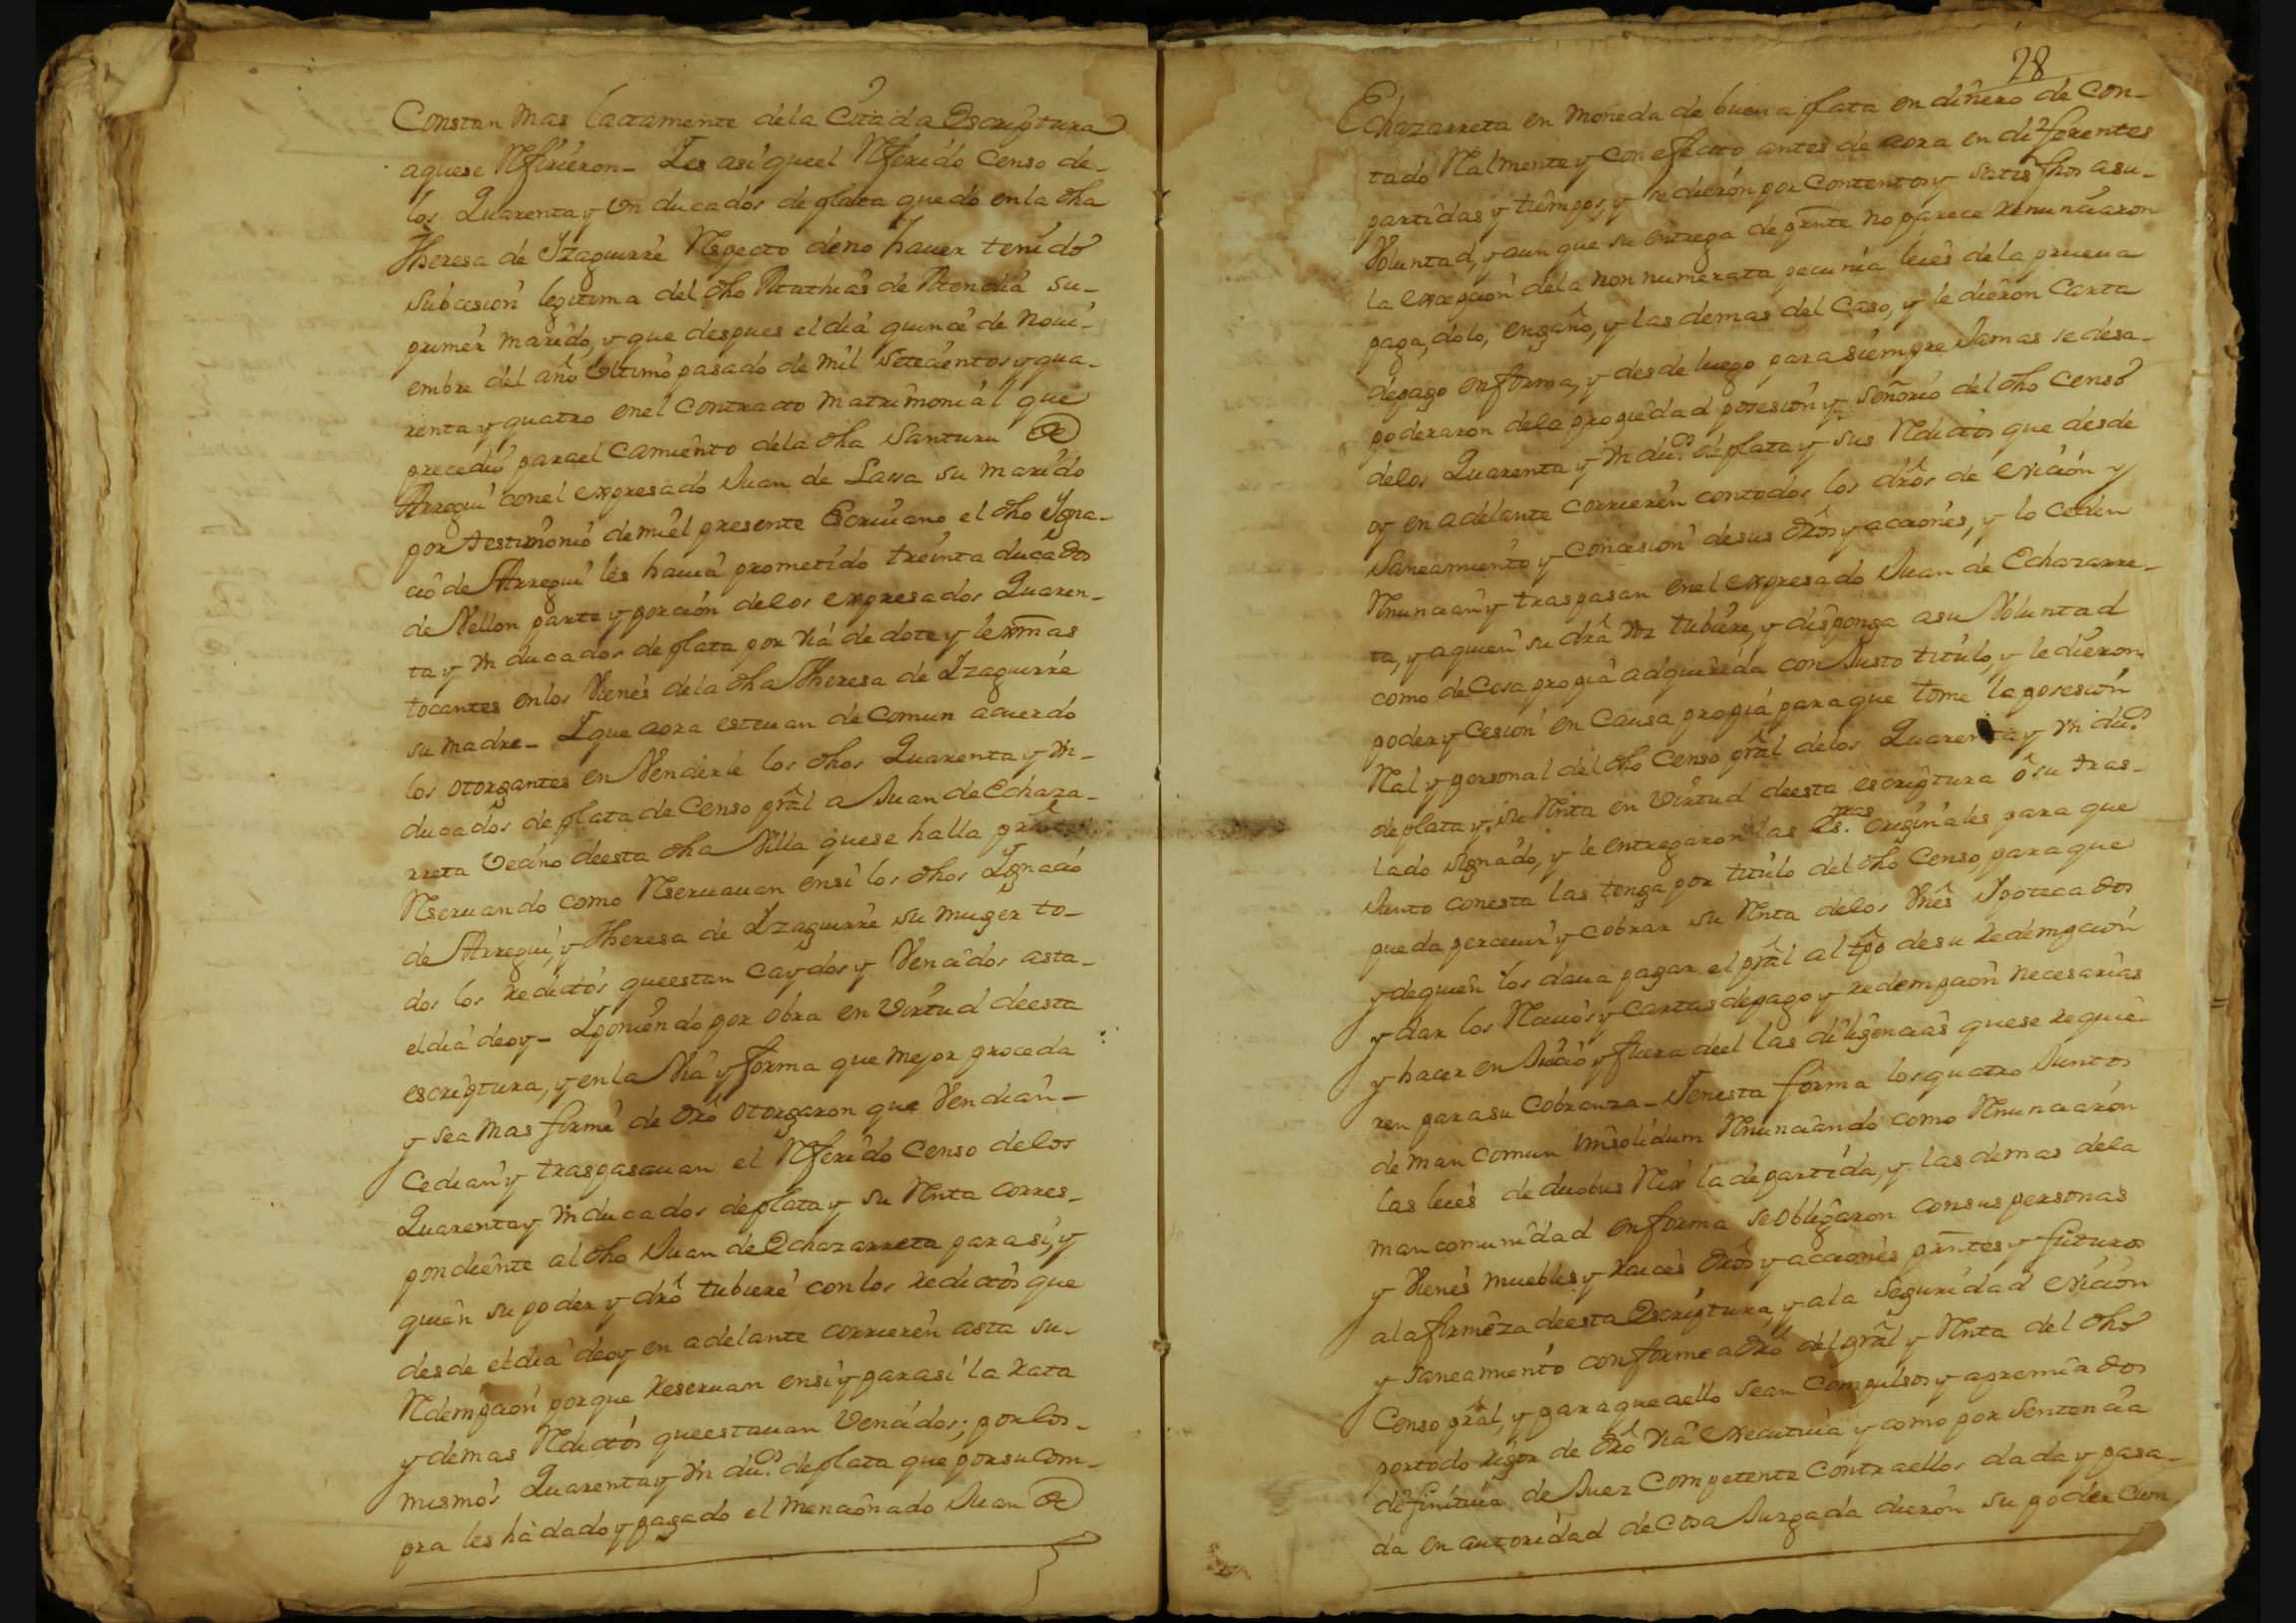 Constan mas lactamente dela Citada Escriptura
aquese Refirieron_ Yes asi queel Referido Censo de_
los Quarenta y Un ducados de plata quedo en la dha
Theresa de Yzaguirre Respecto deno haver tenido
subcesion legitima del dho Mathias de Atendia su_
primer marido, y que despues el dia quince de Novi_
embre del año Ultimo pasado de mil setecientos y qua_
renta y quatro enel Contracto matrimonial que
precedio parael Camiento dela dha Santuru de
Arregui conel expresado Juan de Lassa su marido
por testimonio demi el presente Escrivano el dho Ygna_
cio de Arregui les havia prometido treinta ducados
de Vellon parte y porcion delos expresados Quaren_
ta y Un ducados de plata por via de dote y lexmas
tocantes enlos Vienes dela dha Theresa de Yzaguirre
su madre_ Y que aora estavan de Comun acuerdo
los otorgantes en Venderle los dhos Quarenta y Un_
ducados de plata de Censo pral a Juan de Echaza_
rreta Vecino deesta dha Villa quese halla prte
Reservando como Reservavan ensi los dhos Ygnacio
de Arregui, y Theresa de Yzaguirre su muger to_
dos los redictos queestan caydos y Vencidos asta_
eldia deoy_ Y poniendo por obra en Virtud deesta
escriptura, y enla Via y forma que mejor proceda
y sea mas firme de dro otorgaron que Vendian_
Cedian y traspasavan el Referido Censo delos
Quarenta y Un ducados de plata y su Renta corres_
pondiente al dho Juan de Echazarreta para si, y
quien su poder y dro tubiere con los redictos que
desde el dia deoy en adelante corrieren asta su_
Redempcion porque reservan ensi y para si la rata
y demas Redictos queestavan Vencidos; por los_
mismos Quarenta y Un dus. de plata que por su Com_
pra les ha dado y pagado el mencionado Juan de
28
Echazarreta en moneda de buena plata en dinero de Con_
tado Realmente y con efecto antes de aora en diferentes
partidas y tiempos, y se dieron por Contentos y satisfhos asu_
Voluntad, y aunque su entrega de prnte no parece renunciaron
la excepcion dela non numerata pecunia leies dela prueva
paga, dolo, engaño, y las demas del Caso, y le dieron Carta
depago enforma, y desde luego para siempre Jamas se desa_
poderaron dela propiedad posesion y señorio del dho Censo
delos Quarenta y Un dus. de plata y sus Redictos que desde
oy en adelante corrieren contodos los dros de eviccion y
Saneamiento y concesion desus dros y acciones, y lo ceden
Renuncian y traspasan enel expresado Juan de Echazarre_
ta, y aquien su dra voz tubiere, y disponga asu Voluntad
como de Cosa propia adquirida con Justo titulo, y le dieron
poder y Cesion en Causa propia para que tome la posesion
Real y personal del dho Censo pral delos Quarenta y Un dus.
de plata y su Renta en Virtud deesta escriptura ô su tras_
lado signado, y le entregaron las Es.tras originales para que
Junto conesta las tenga por titulo del dho Censo, para que
pueda percevir y cobrar su Renta delos Vies Ypotecados
y dequien los deva pagar el pral al tpo desu redempcion
y dar los Recivos y cartas depago y redempcion necesarias
y hacer en Juicio y fuera deel las diligencias quese requie_
ren para su Cobranza_ Yenesta forma los quatro Juntos
de man Comun Ynsolidum Renunciando como Renunciaron
las leies de duobus Rex ladepartida, y las demas dela
mancomunidad enforma se obligaron consus personas
y Vienes muebles y raices dros y acciones prntes y futuros
ala firmeza deesta Escriptura, y ala seguridad eviccion
y Saneamiento conforme a dro del pral y Renta del dho
Censo pral, y para que aello sean Compulsos y apremiados
portodo rigor de dro via executiva y como por Sentencia
difinitiva de Juez Competente Contra ellos dada y pasa_
da en autoridad de cosa Juzgada dieron su poder Cum